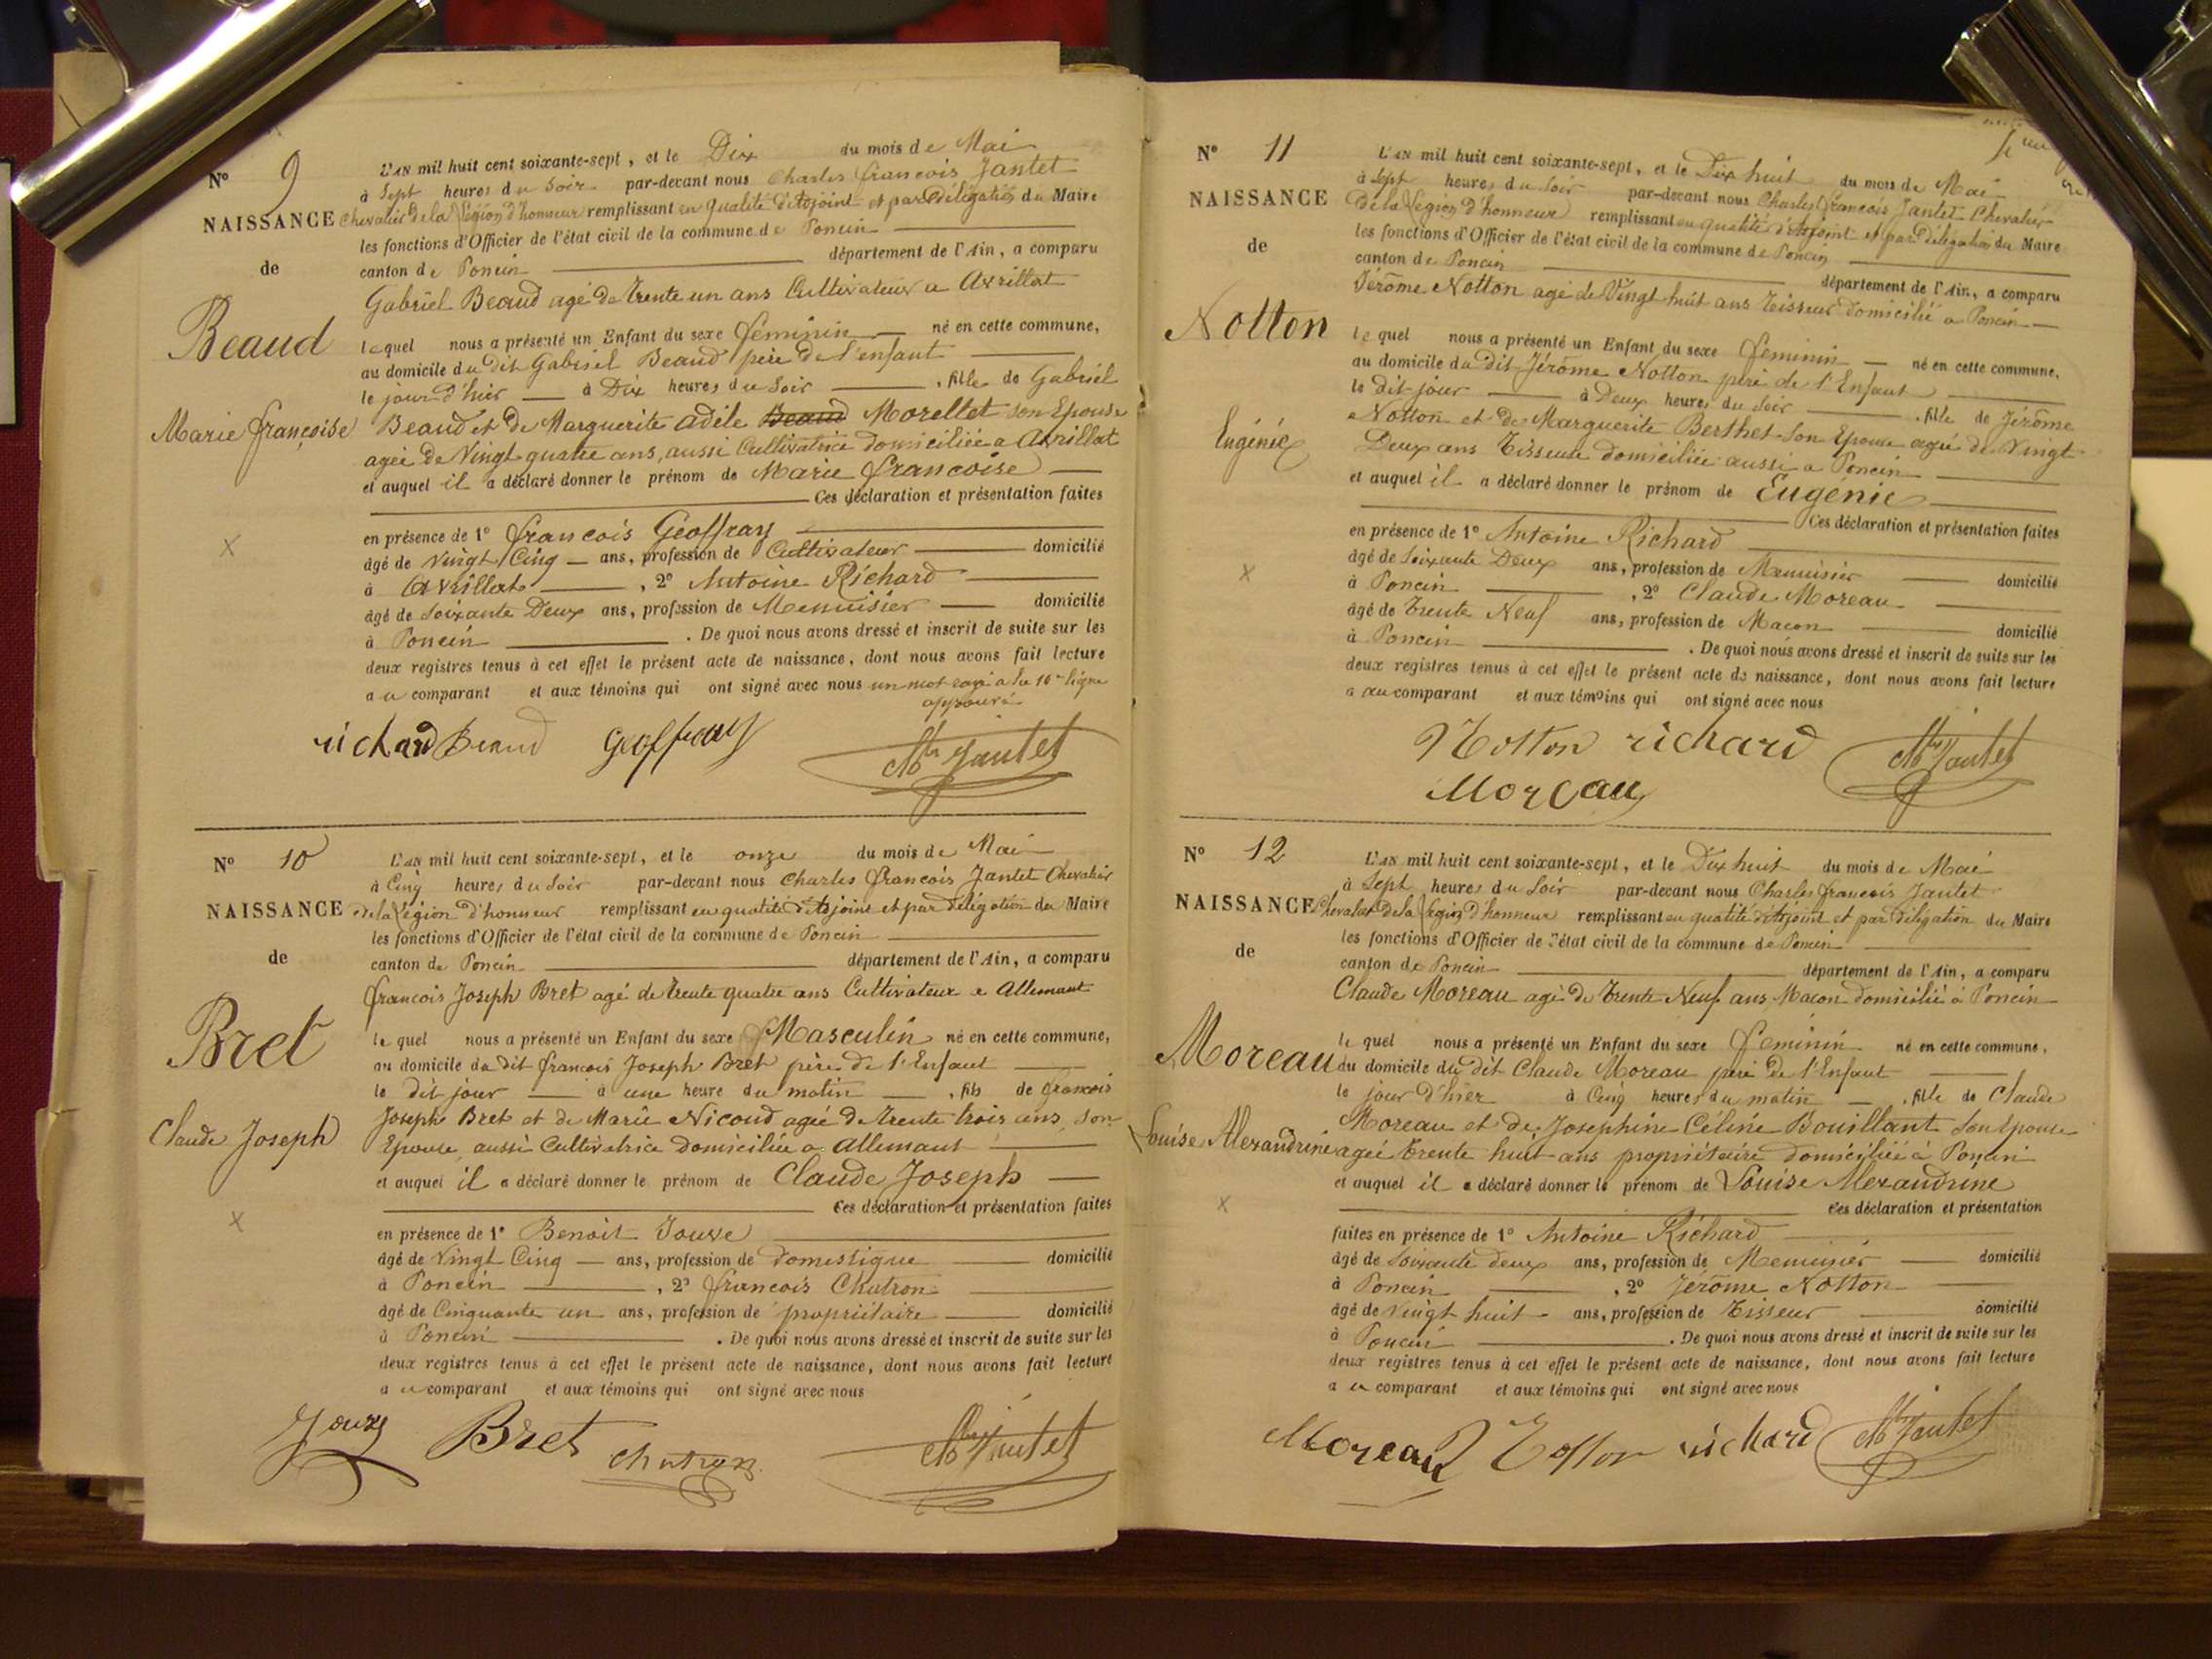 N° 9
NAISSANCE
de
Beaud
Marie françoise
L'AN mil huit cent soixante-sept, et le Dix du mois de Mai
à Sept heures du Soir par-devant nous Charles francois Jantet
Chevalier de la Légion d'honneur remplissant en qualité d'Adjoint et par Délégation du Maire
les fonctions d'Officier de l'état civil de la commune de Poncin
canton de Poncin département de l'Ain, a comparu
Gabriel Beaud agé de trente un ans Cultivateur a Avrillat
lequel nous a présenté un Enfant du sexe féminin né en cette commune,
au domicile du dit Gabriel Beaud père de l'enfant
le jour d'hier à Dix heures du Soir , fille de Gabriel
Beaud et de Marguerite Adèle Beaud Morellet son Epouse
agée de Vingt quatre ans, aussi Cultivatrice domiciliée a Avrillat
et auquel il a déclaré donner le prénom de Marie francoise
Ces déclaration et présentation faites
en présence de 1° francois Geoffray
âgé de Vingt Cinq ans, profession de Cultivateur domicilié
à Avrillat , 2° Antoine Richard
âgé de Soixante Deux ans, profession de Menuisier domicilié
à Poncin . De quoi nous avons dressé et inscrit de suite sur les
deux registres tenus à cet effet le présent acte de naissance, dont nous avons fait lecture
au comparant et aux témoins qui ont signé avec nous un mot rayé a la 10me ligne
approuvé
richard Beaud Geoffray Jantet
N° 10
NAISSANCE
de
Bret
Claude Joseph
L'AN mil huit cent soixante-sept, et le onze du mois de Mai
à Cinq heures du Soir par-devant nous Charles francois Jantet Chevalier
de la Légion d'honneur remplissant en qualité d'Adjoint et par délégation du Maire
les fonctions d'Officier de l'état civil de la commune de Poncin
canton de Poncin département de l'Ain, a comparu
francois Joseph Bret agé de trente quatre ans Cultivateur a Allemant
lequel nous a présenté un Enfant du sexe Masculin né en cette commune,
au domicile du dit francois Joseph Bret père de l'Enfant
le dit jour à une heure du matin , fils de francois
Joseph Bret et de Marie Nicoud agée de trente trois ans, son
Epouse, aussi Cultivatrice domiciliée a Allemant
et auquel il a déclaré donner le prénom de Claude Joseph
Ces déclaration et présentation faites
en présence de 1° Benoit Jouve
âgé de Vingt Cinq ans, profession de domestique domicilié
à Poncin , 2° francois Chatron
âgé de Cinquante un ans, profession de propriétaire domicilié
à Poncin . De quoi nous avons dressé et inscrit de suite sur les
deux registres tenus à cet effet le présent acte de naissance, dont nous avons fait lecture
au comparant et aux témoins qui ont signé avec nous
Bret Chatron Jantet
N° 11
NAISSANCE
de
Notton
Eugénie
L'AN mil huit cent soixante-sept, et le Dix huit du mois de Mai
à Sept heures du Soir par-devant nous Charles francois Jantet Chevalier
de la Légion d'honneur remplissant en qualité d'Adjoint et par délégation du Maire
les fonctions d'Officier de l'état civil de la commune de Poncin
canton de Poncin département de l'Ain, a comparu
Jérôme Notton agé de Vingt huit ans Tisseur domicilié a Poncin
lequel nous a présenté un Enfant du sexe féminin né en cette commune,
au domicile du dit Jérôme Notton père de l'Enfant
le dit jour à Deux heures du Soir , fille de Jérôme
Notton et de Marguerite Berthet son Epouse agée de Vingt
Deux ans Tisseuse domiciliée aussi a Poncin
et auquel il a déclaré donner le prénom de Eugénie
Ces déclaration et présentation faites
en présence de 1° Antoine Richard
âgé de Soixante Deux ans, profession de Menuisier domicilié
à Poncin , 2° Claude Moreau
âgé de trente Neuf ans, profession de Macon domicilié
à Poncin . De quoi nous avons dressé et inscrit de suite sur les
deux registres tenus à cet effet le présent acte de naissance, dont nous avons fait lecture
a au comparant et aux témoins qui ont signé avec nous
Notton richard Jantet
Moreau
N° 12
NAISSANCE
de
Moreau
Louise Alexandrine
L'AN mil huit cent soixante-sept, et le Dix huit du mois de Mai
à Sept heures du Soir par-devant nous Charles francois Jantet
Chevalier de la Légion d'honneur remplissant en qualité d'Adjoint et par délégation du Maire
les fonctions d'Officier de l'état civil de la commune de Poncin
canton de Poncin département de l'Ain, a comparu
Claude Moreau agé de trente Neuf ans Macon domicilié à Poncin
lequel nous a présenté un Enfant du sexe féminin né en cette commune,
au domicile du dit Claude Moreau père de l'Enfant
le jour d'hier à Cinq heures du matin , fille de Claude
Moreau et de Josephine Céline Bouillant son Epouse
agée trente huit ans propriétaire domiciliée à Poncin
et auquel il a déclaré donner le prénom de Louise Alexandrine
Ces déclaration et présentation
faites en présence de 1° Antoine Richard
âgé de Soixante deux ans, profession de Menuisier domicilié
à Poncin , 2° Jérôme Notton
âgé de Vingt huit ans, profession de Tisseur domicilié
à Poncin . De quoi nous avons dressé et inscrit de suite sur les
deux registres tenus à cet effet le présent acte de naissance, dont nous avons fait lecture
au comparant et aux témoins qui ont signé avec nous
Moreau Notton richard Jantet